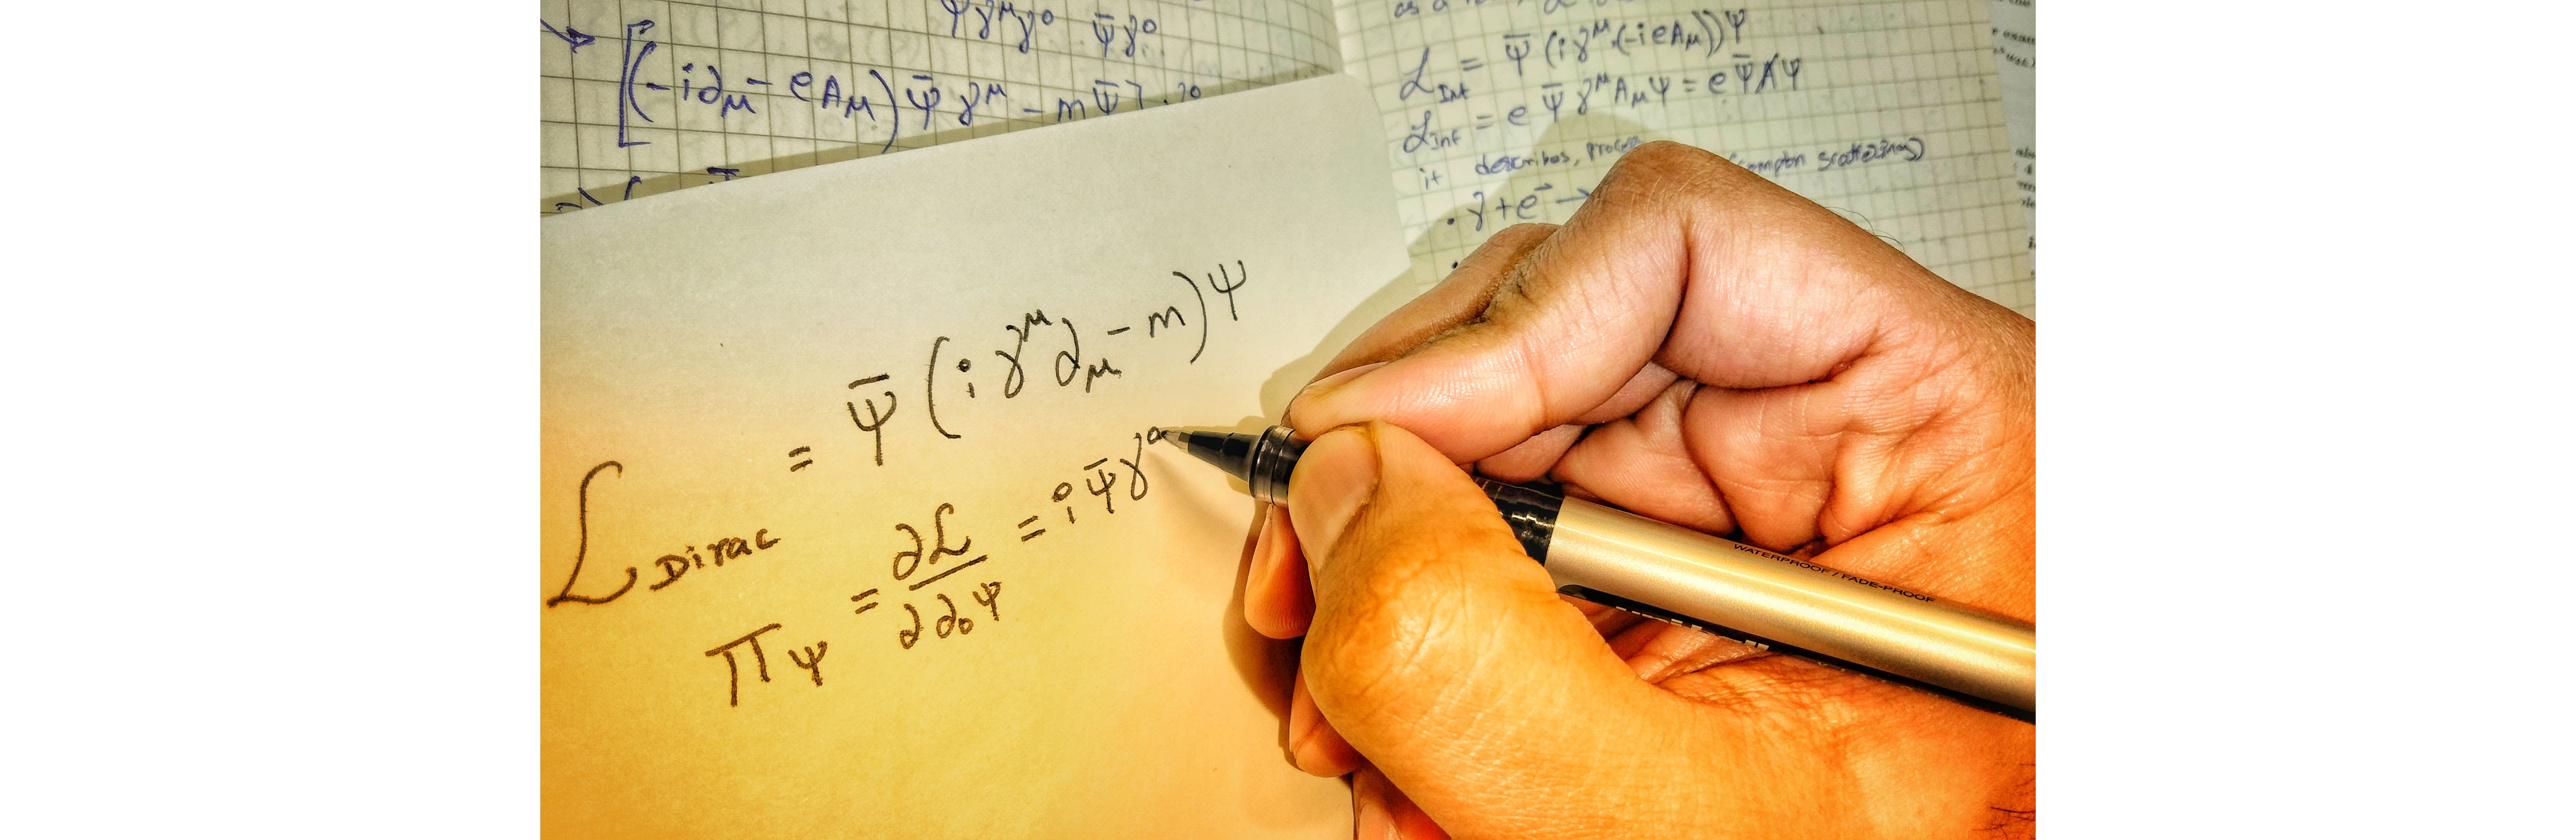 ψ̄γ^μγ⁰ ψ̄γ⁰
→ [(-i∂_μ - eA_μ)ψ̄γ^μ - mψ̄].γ⁰
as a
ℒ_Int = ψ̄(iγ^μ(-ieA_μ))ψ
ℒ_Int = eψ̄γ^μA_μψ = eψ̄A̸ψ
it describes, (compton scattering)
• γ + e⁻ →
ℒ_Dirac = ψ̄(iγ^μ∂_μ - m)ψ
Π_ψ = ∂ℒ/∂∂₀ψ = iψ̄γ⁰
WATERPROOF / FADE-PROOF